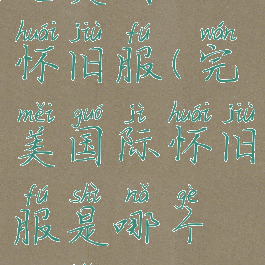 huái jiù fú wán
怀旧服(完
měi guó jì huái jiù
美国际怀旧
fú shì nǎ gè
服是哪个